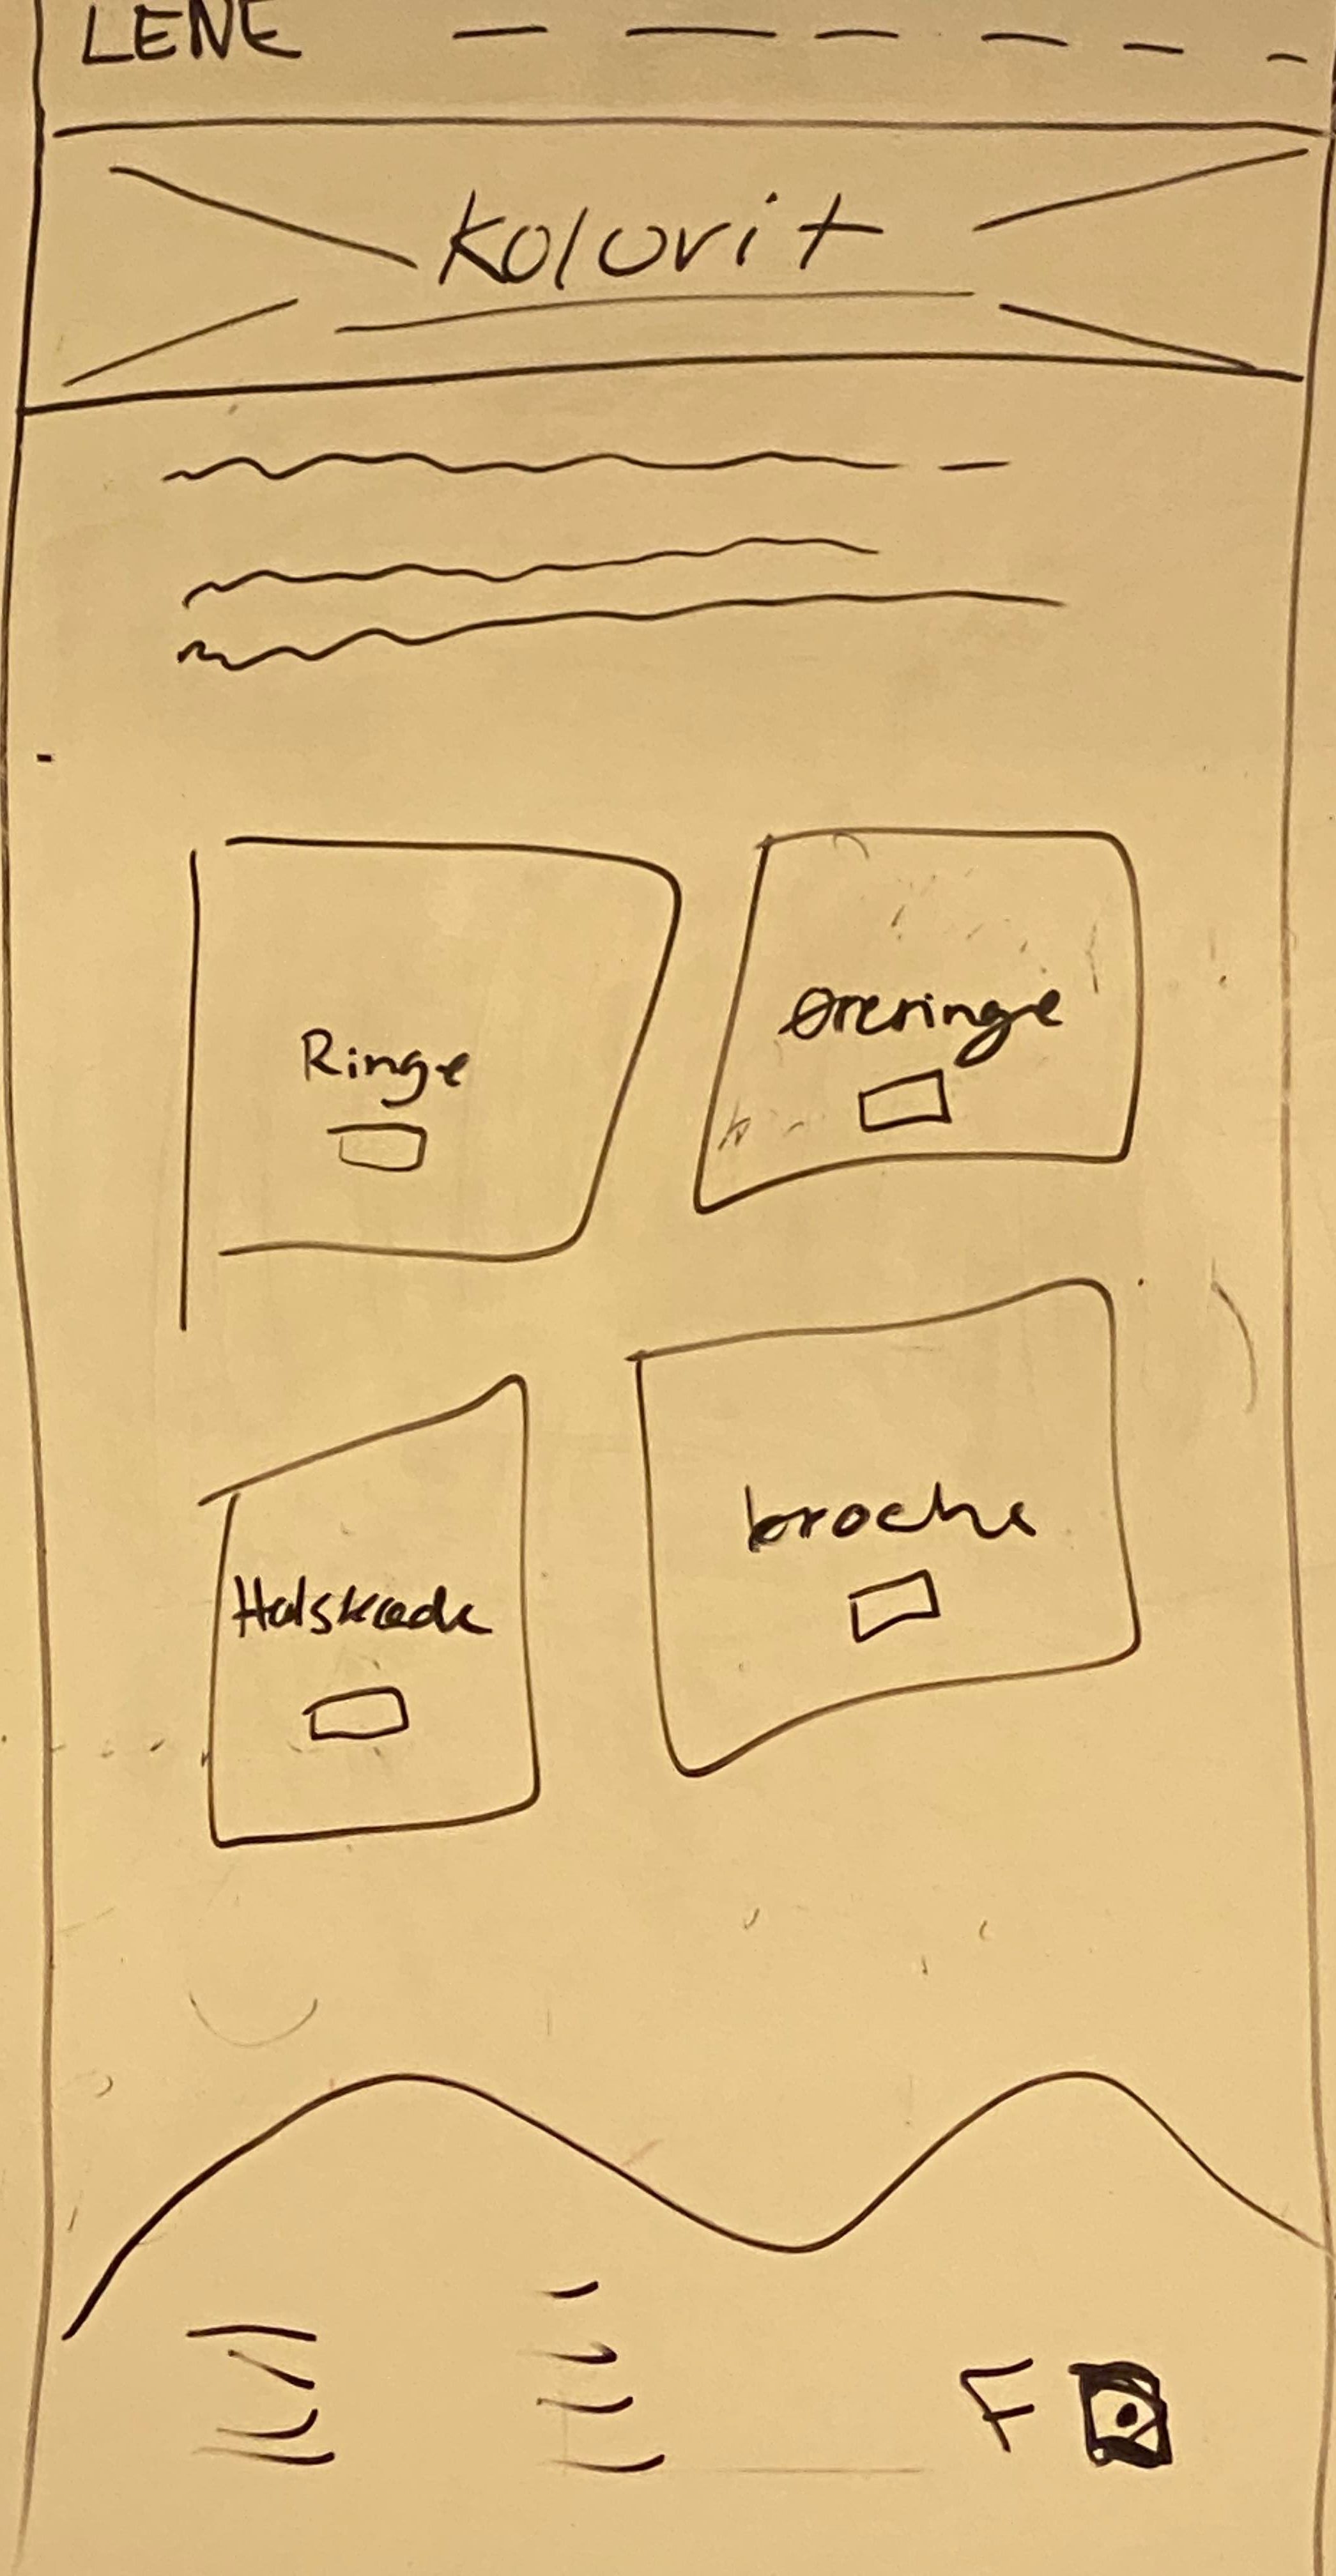 LENE
Kolorit
Ringe
Øreringe
Halskæde
broche
F